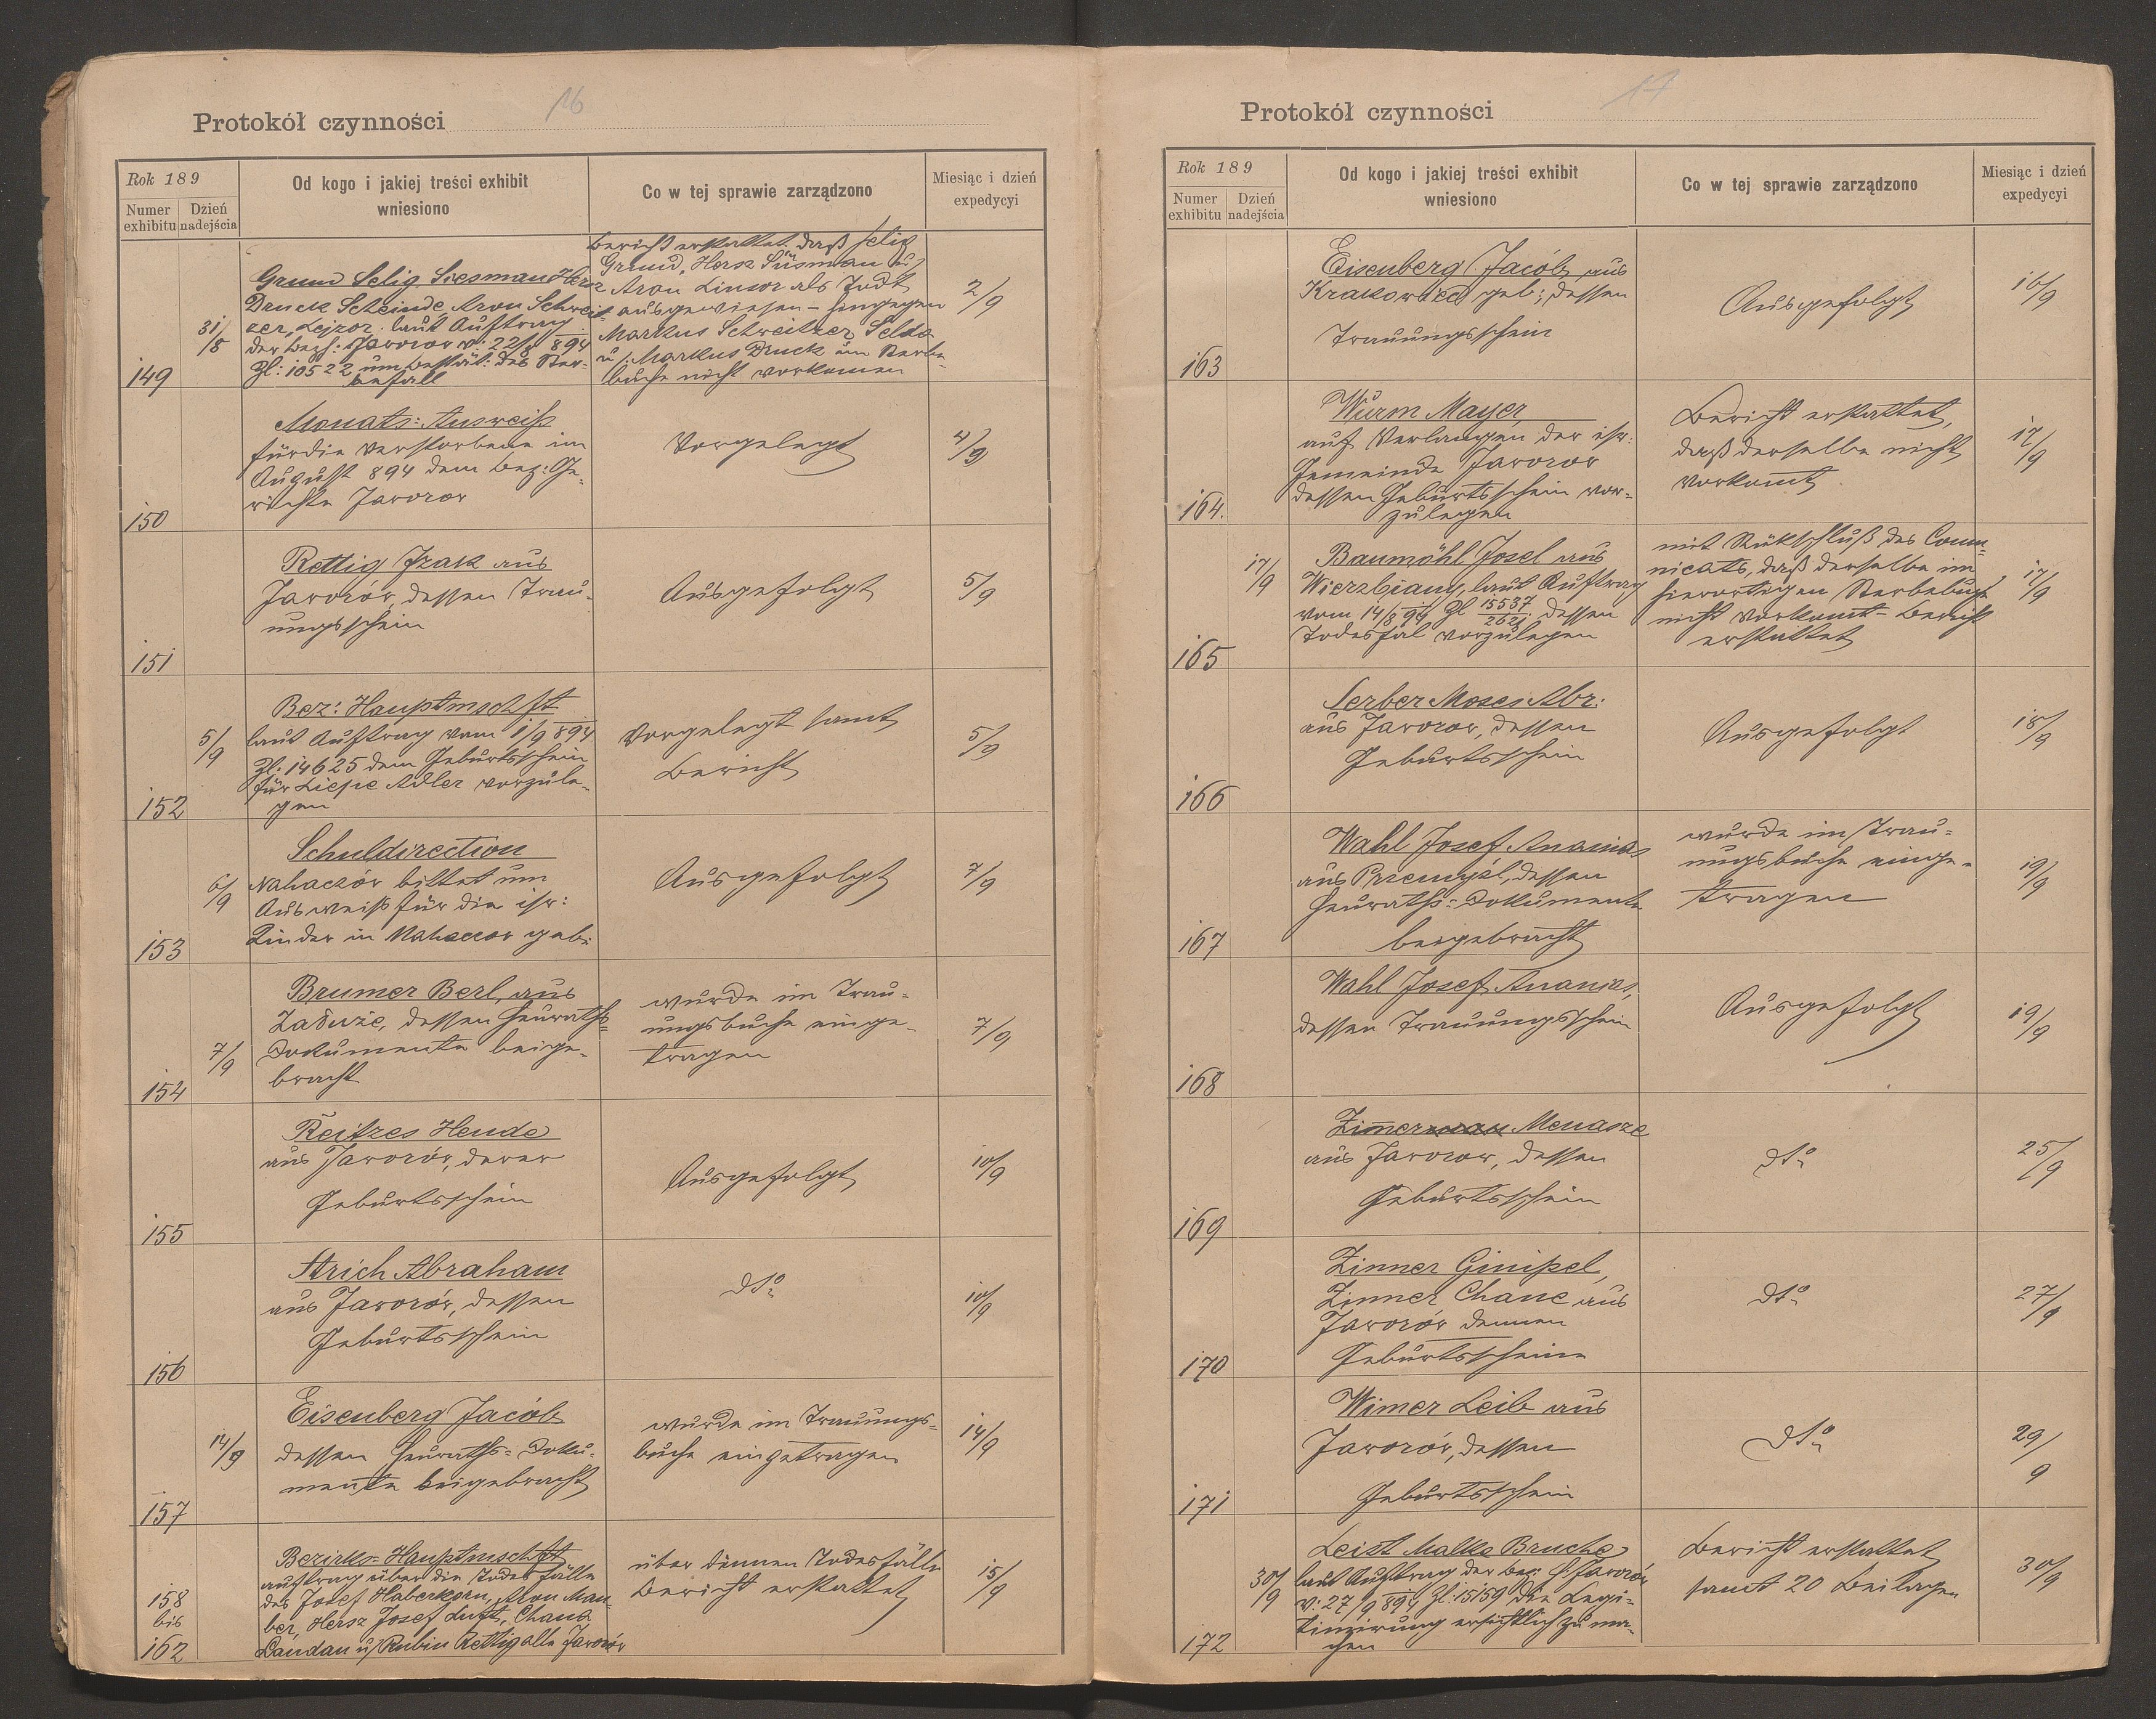 16
Protokół czynności
Rok 189
Numer exhibitu
Dzień nadejścia
Od kogo i jakiej treści exhibit
wniesiono
Co w tej sprawie zarządzono
Miesiąc i dzień
expedycyi
149
31/8
Grund Selig, Siesman Hersz
Druck Scheinde, Aron Schweit-
zer, Lejzor. laut Auftrag
der Bezh: Jaworow v: 22/8 894
Zl: 10522 um Bestät: des Ster-
befall
Bericht erstattet, daß Selig
Grund, Hersz Süsman u/
Aron als Todt
ausgewiesen – hingegen
Markus Schweitzer, Selda
u/ Markus Druck im Sterbe-
buche nicht vorkomen
2/9
150
Monats=Ausweiß
für die Verstorbene im
August 894 dem Bez: Ge-
richte Jaworow
Vorgelegt
4/9
151
Rettig Izak aus
Jaworów, dessen Trau-
ungsschein
Ausgefolgt
5/9
152
5/9
Bez: Hauptmschft
laut Auftrag vom 1/9 894
Zl: 14625 dem Geburtsschein
für Liepe Adler vorzule-
gen
Vorgelegt samt
Bericht
5/9
153
6/9
Schuldirection
Nahaczów bittet um
Ausweiß für die isr:
Kinder in Nahaczow geb:
Ausgefolgt
7/9
154
7/9
Brumer Berl, aus
Zaduże, dessen Heuraths-
Dokumente beige-
bracht
wurde im Trau-
ungsbuche einge-
tragen
7/9
155
Reitzes Hende
aus Jaworów, deren
Geburtsschein
Ausgefolgt
10/9
156
Strich Abraham
aus Jaworów, dessen
Geburtsschein
dto
10/9
157
14/9
Eisenberg Jacób
dessen Heuraths=Doku-
mente beigebracht
wurde im Trauungs-
buche eingetragen
14/9
158
bis
162
Bezirks=Hauptmschft
auftrag über die Todesfälle
des Josef Haberkorn, Aron Mau-
ber, Hersz Josef Luft, Chana
Landau u/ Rubin Rettig alle Jaworów
über Todesfälle
Bericht erstattet
15/9
17
Protokół czynności
Rok 189
Numer exhibitu
Dzień nadejścia
Od kogo i jakiej treści exhibit
wniesiono
Co w tej sprawie zarządzono
Miesiąc i dzień
expedycyi
163
Eisenberg Jacób aus
Krakowiec geb; dessen
Trauungsschein
Ausgefolgt
16/9
164.
Wurm Mayer
auf Verlangen der isr:
Gemeinde Jaworow
dessen Geburtsschein vor-
zulegen
Bericht erstattet,
daß derselbe nicht
vorkomt
17/9
165
17/9
Baumöhl Josel aus
Wierzbiany, laut Auftrag
vom 14/8 94 Zl 15537/2621 dessen
Todesfal vorzulegen
mit Rükschluß des Comu-
nicats, daß derselbe im
hierortigen Sterbebuche
nicht vorkomt – Bericht
erstattet
17/9
166
Serber Moses Abr:
aus Jaworow, dessen
Geburtsschein
Ausgefolgt
18/9
167
Wahl Josef Ananias
aus Przemyśl, dessen
Heuraths=Dokumente
beigebracht
wurde im Trau-
ungsbuche einge-
tragen
19/9
168
Wahl Josef Ananias,
dessen Trauungsschein
Ausgefolgt
19/9
169
Zimerman Menasze
aus Jaworow, dessen
Geburtsschein
dto
25/9
170
Zinner Gimpel,
Zinner Chane aus
Jaworów dennen
Geburtsscheine
dto
27/9
171
Wimer Leib aus
Jaworów, dessen
Geburtsschein
dto
29/9
172
30/9
Leizt Malke Bruche
laut Auftrag der Bez: H Jaworów
v: 27/9 894 Zl: 15159 die Legi-
timirung ersichtlich zu ma-
chen
Bericht erstattet
samt 20 Beilagen
30/9